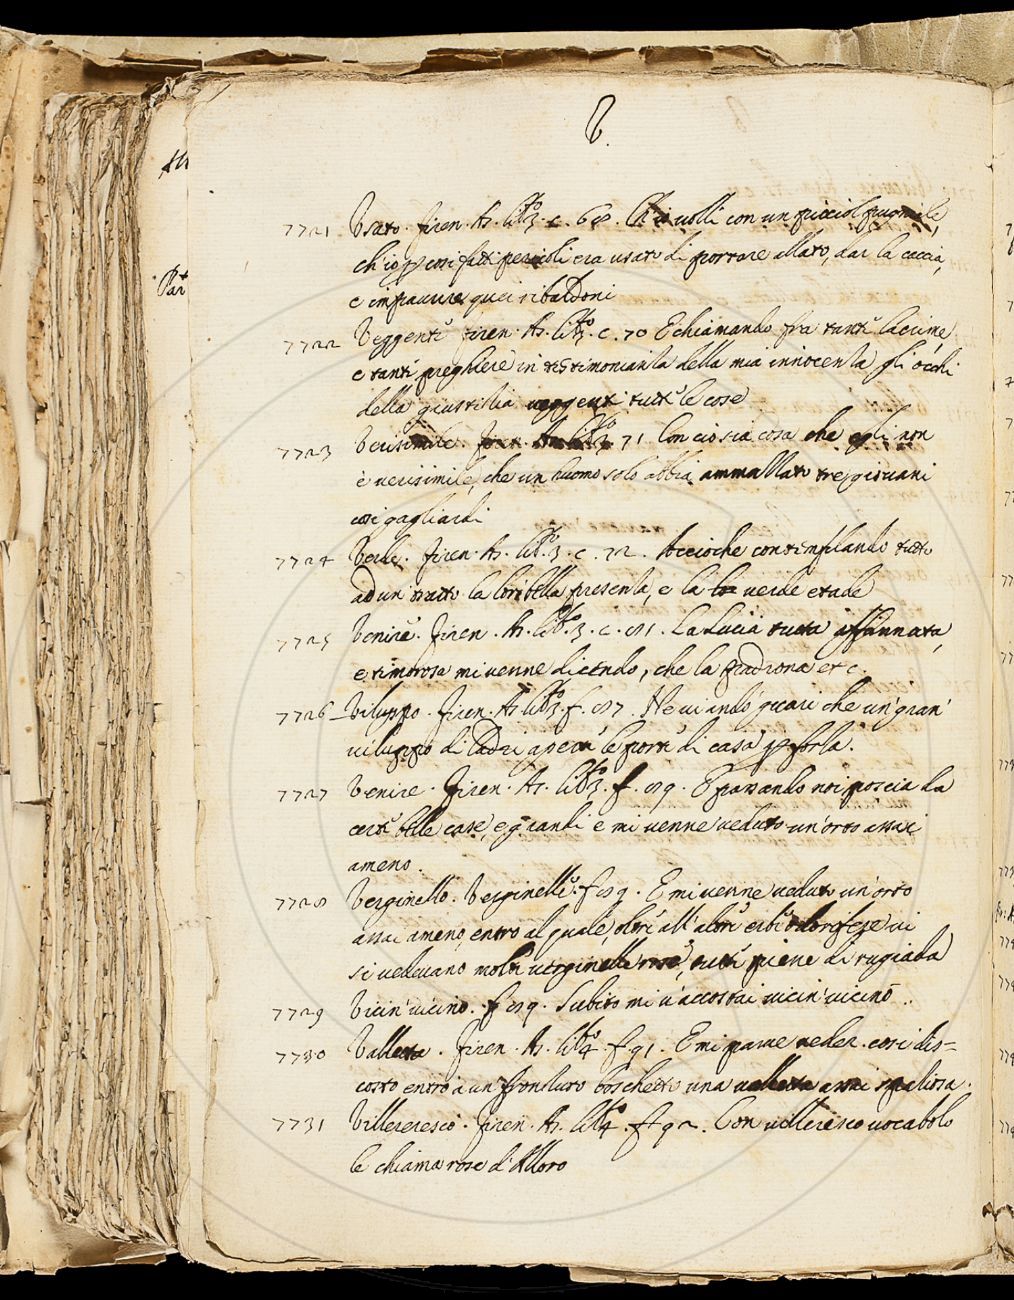 V.
7721 Vsato. Firen. As. lib.º 3. c. 68. Ch'io volli con un picciol pugnale,
ch'io p cosi fatti pericoli era usato di portare allato, dar la caccia,
e impaurire quei ribaldoni
7722 Veggenti Firen. As. lib.º 3. c. 70 E chiamando fra tante lacrime,
e tanti preghiere in testimonianza della mia innocenza gli occhi
della giustitia veggenti tutte le cose
7723 Verisimile. Firen. As. lib.º 3. 71 Con cio sia cosa che egli non
è verisimile, che un huomo solo abbia ammazzato tre giovani
cosi gagliardi
7724 Verde. Firen. As. lib.º 3. c. 72. Accioche contemplando tutto
ad un tratto la lor bella presenza, e la verde etade
7725 Venire. Firen. As. lib.º 3. c. 81. La Lucia tutta affannata,
e timorosa mi venne dicendo, che la padrona etc.
7726 Viluppo. Firen. As. lib.º 3. f. 87. Ne vi andò guari che un gran
viluppo di ladri aperse le porte di casa p forza.
7727 Venire. Firen. As. lib.º 3. f. 89. E passando noi poscia da
certe belle case, e grandi e mi venne veduto un'orto assai
ameno.
7728 Verginello. Verginelle. f 89. E mi venne veduto un'orto
assai ameno, entro al quale, oltre all'altre erbe odorifere vi
si vedevano molte verginelle rose, tutte piene di rugiada
7729 Vicin'vicino. f 89. Subito mi v'accostai vicin'vicino.
7730 Valletta. Firen. As. lib.º 4. f 91. E mi parve veder cosi dis=
costo entro a un fronzuto boschetto una valletta assai
7731 Villeresco. Firen. As. lib.º 4. f 92. Con villeresco vocabolo
le chiama rose d'Alloro